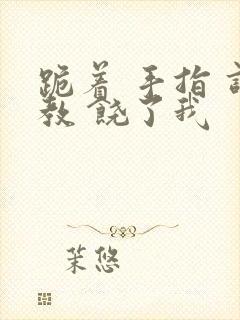 跪着 手指
教 饶了我
茉悠